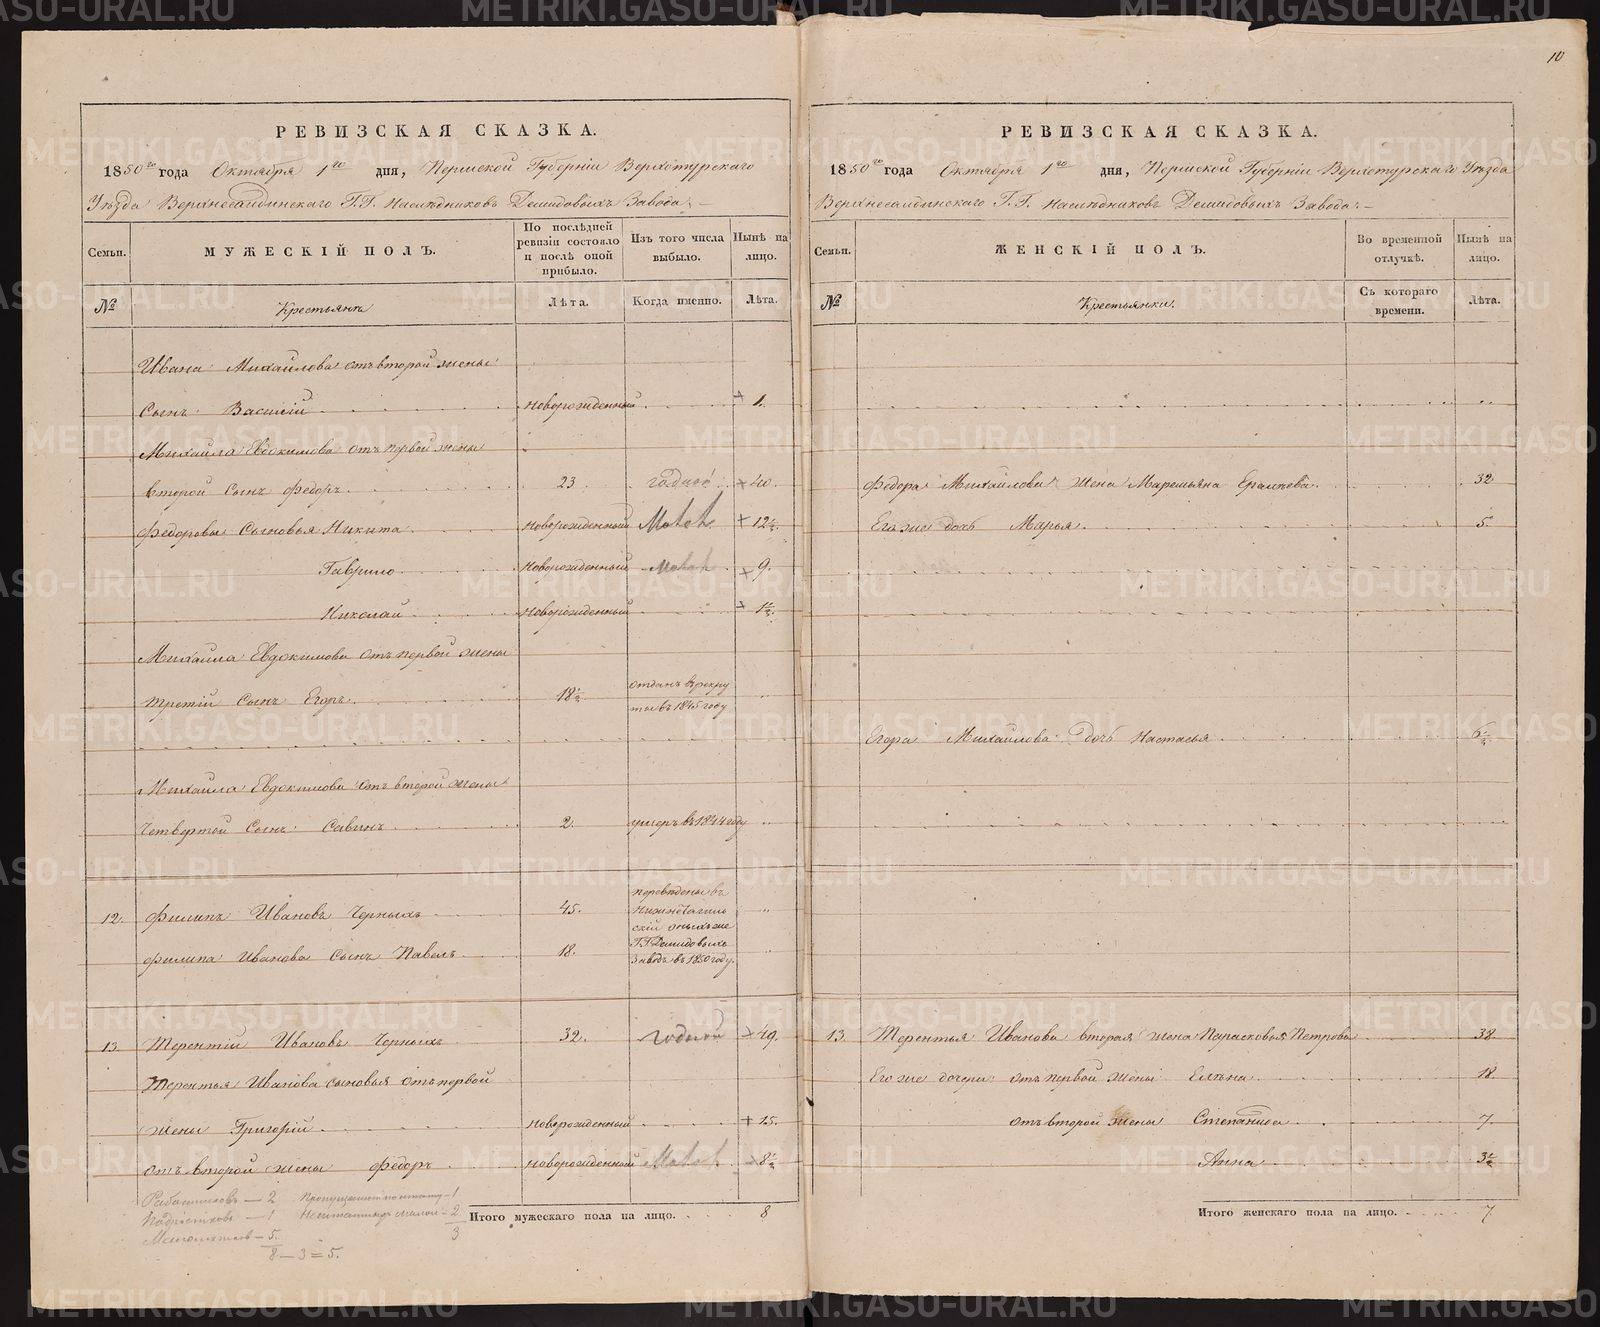 10
РЕВИЗСКАЯ СКАЗКА.
1850го года Октября 1го дня, Пермской Губерніи Верхотурскаго
Уѣзда Верхнесалдинскаго Г.Г. Наслѣдниковъ Демидовыхъ Завода:
Семьи.
МУЖЕСКІЙ ПОЛЪ.
По послѣдней ревизіи состояло и послѣ оной прибыло.
Изъ того числа выбыло.
Нынѣ на лицо.
№
Крестьяне
Лѣта.
Когда именно.
Лѣта.
Ивана Михайлова отъ второй жены
сынъ Василій новорожденный + 1.
Михайла Евдокимова отъ первой жены
второй сынъ Федоръ 23 годной + 40.
Федоровы сыновья Никита новорожденный + 12½
Гаврило новорожденный + 9.
Николай новорожденный + 1½
Михайла Евдокимова отъ первой жены
третій сынъ Егоръ 18½ отданъ в рекруты въ 1845 году
Михайла Евдокимова отъ второй жены
четвертой сынъ Савинъ 2. умеръ въ 1844 году
12. Филипъ Ивановъ Черныхъ 45. переведены въ Нижнетагильскій оныхъ же Г.Г. Демидовыхъ заводъ въ 1850 году.
Филипа Иванова сынъ Павелъ 18.
13. Терентій Ивановъ Черныхъ 32. годной 49.
Терентья Иванова сыновья отъ первой
жены Григорій новорожденный + 15.
отъ второй жены Федоръ новорожденный 8½
Работниковъ — 2
Подростковъ — 1
Малолѣтковъ — 5.
8 — 3 = 5.
— 1
— 2
3
Итого мужескаго пола на лицо. 8
РЕВИЗСКАЯ СКАЗКА.
1850го года Октября 1го дня, Пермской Губерніи Верхотурскаго Уѣзда
Верхнесалдинскаго Г.Г. Наслѣдниковъ Демидовыхъ Завода:
Семьи.
ЖЕНСКІЙ ПОЛЪ.
Во временной отлучкѣ.
Нынѣ на лицо.
№
Крестьянки.
Съ котораго времени.
Лѣта.
Федора Михайлова жена Маремьяна 32
Его же дочь Марья 5.
Егора Михайлова дочь Настасья 6½
13. Терентья Иванова вторая жена Парасковья Петрова 38.
Его же дочери отъ первой жены Елѣна 18.
отъ второй жены Степанида 7.
Анна 3½
Итого женскаго пола на лицо. 7.
METRIKI.GASO-URAL.RU